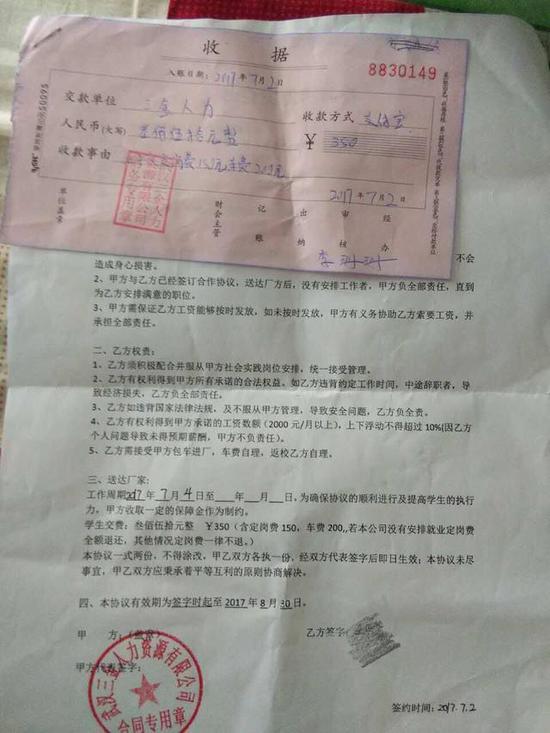 收 据
8830149
入账日期：2017年7月2日
交款单位 三金人力 收款方式 支付宝
人民币(大写) 叁佰伍拾元整 ￥350
收款事由 车费200元
2017年7月2
单位盖章 财会主管 记账 出纳 审核 经办
不会
造成身心损害。
2、甲方与乙方已经签订合作协议，送达厂方后，没有安排工作者，甲方负全部责任，直到
为乙方安排满意的职位。
3、甲方需保证乙方工资能够按时发放，如未按时发放，甲方有义务协助乙方索要工资，并
承担全部责任。
二、乙方权责：
1、乙方须积极配合并服从甲方社会实践岗位安排，统一接受管理。
2、乙方有权利得到甲方所有承诺的合法权益。如乙方违背约定工作时间，中途辞职者，导
致经济损失，乙方负全部责任。
3、乙方如违背国家法律法规，及不服从甲方管理，导致安全问题，乙方负全责。
4、乙方有权利得到甲方承诺的工资数额（2000 元/月以上），上下浮动不得超过 10%(因乙方
个人问题导致未得预期薪酬，甲方不负责任）。
5、乙方需接受甲方包车进厂，车费自理，返校乙方自理。
三、送达厂家：
工作周期2017年7月4日至___年___月___日，为确保协议的顺利进行及提高学生的执行
力，甲方收取一定的保障金作为制约。
学生交费：叁佰伍拾元整 ￥350（含定岗费 150，车费 200,,若本公司没有安排就业定岗费
全额退还，其他情况定岗费一律不退。）
本协议一式两份，不得涂改，甲乙双方各执一份，经双方代表签字后即日生效；本协议未尽
事宜，甲乙双方应秉承着平等互利的原则协商解决。
四、本协议有效期为签字时起至 2017 年 8 月 30 日。
甲 方：(盖章) 乙方签字
甲方代表签字：
武汉三金人力资源有限公司
合同专用章
签约时间:2017.7.2